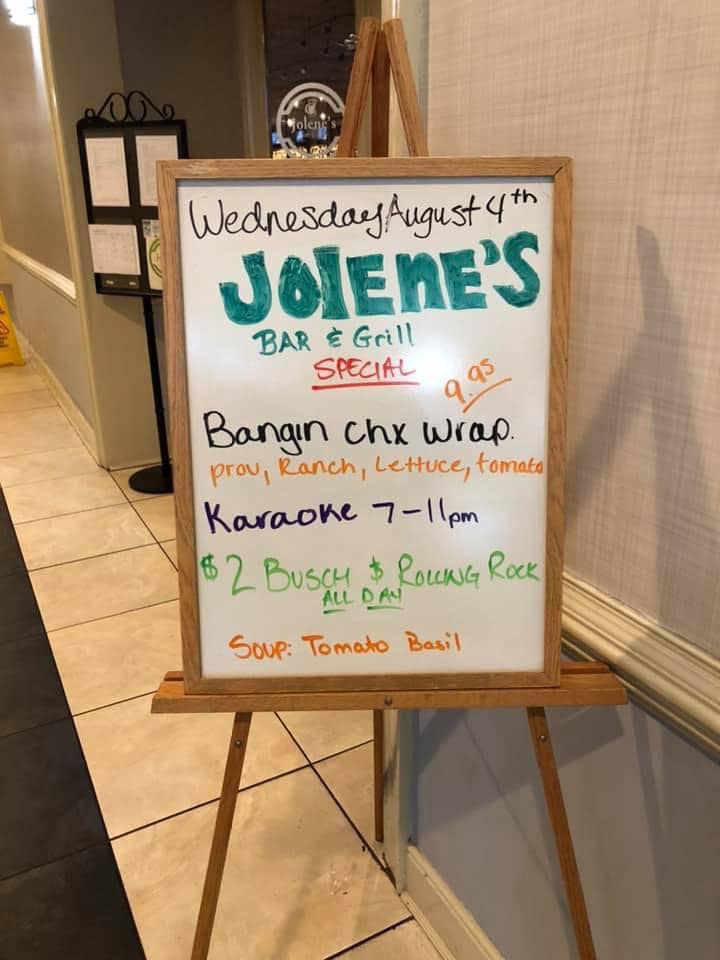 Jolene's
Wednesday August 4th
JOlEnE'S
BAR & Grill
SPECIAL
9.95
Bangin chx wrap.
prov, Ranch, Lettuce, tomato
Karaoke 7-11pm
$2 BUSCH $ ROLLING ROCK
ALL DAY
Soup: Tomato Basil